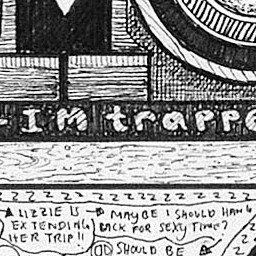 -I'M trappe
z z z z z z z z z z z z z z z z
LIZZIE IS
EXTENDING
HER TRIP!!
MAYBE I SHOULD HANG
BACK FOR SEXY TIME?
SHOULD BE
z
z
z